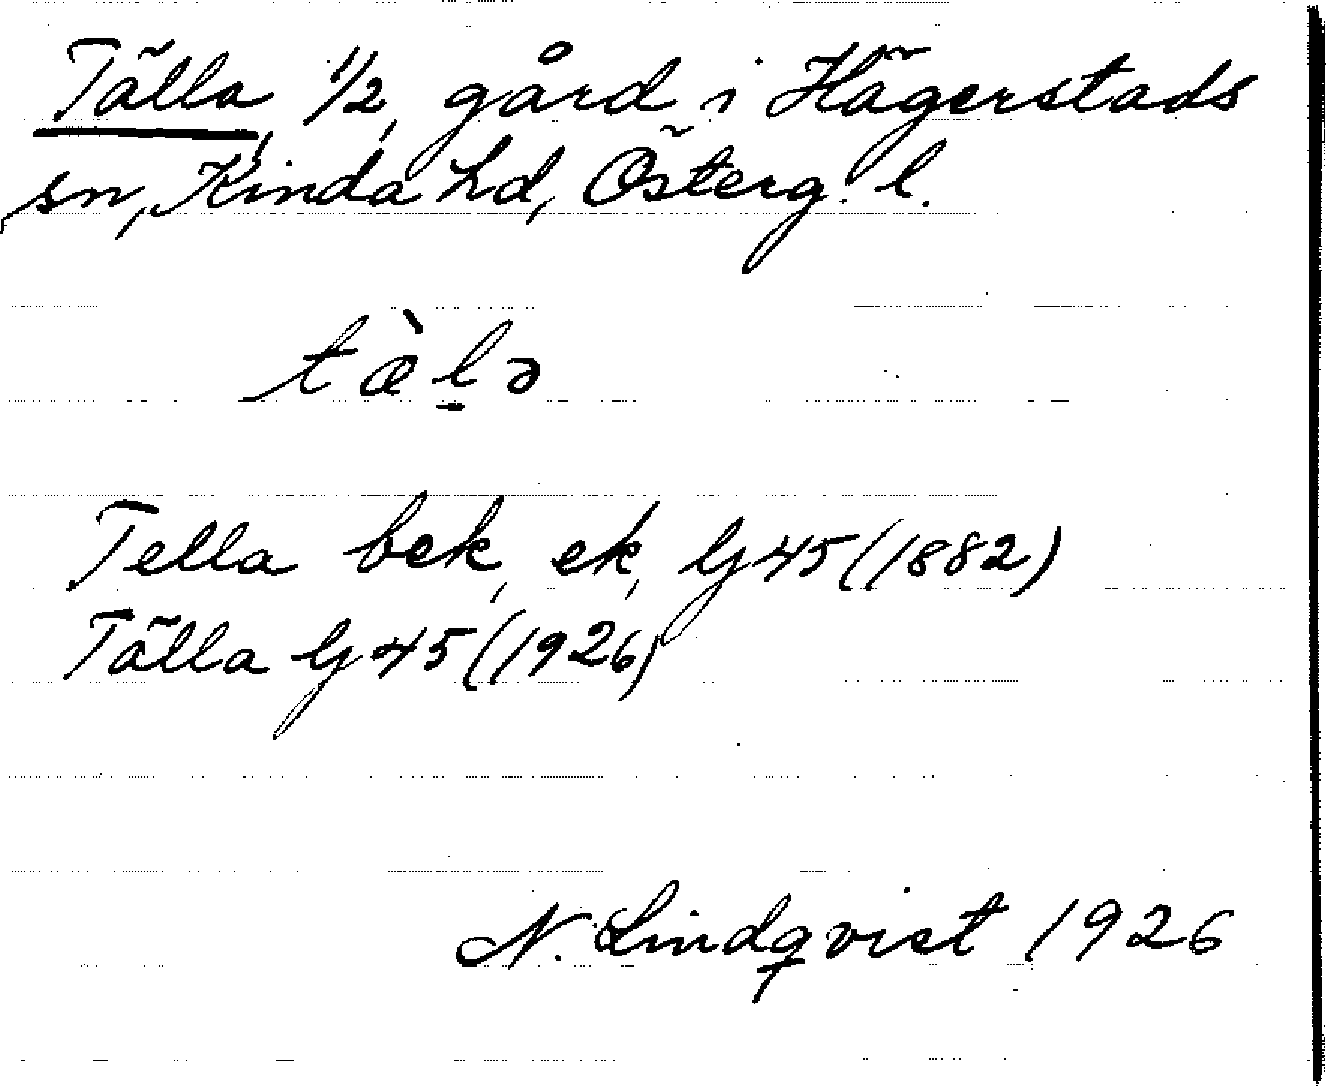 Tälla, 1/2, gård i Hägerstads
sn, Kinda hd, Österg. l.
tæ̀l̠ə
Tella bek, ek, Gj 45 (1882)
Tälla Gj 45 (1926)
N. Lindqvist 1926